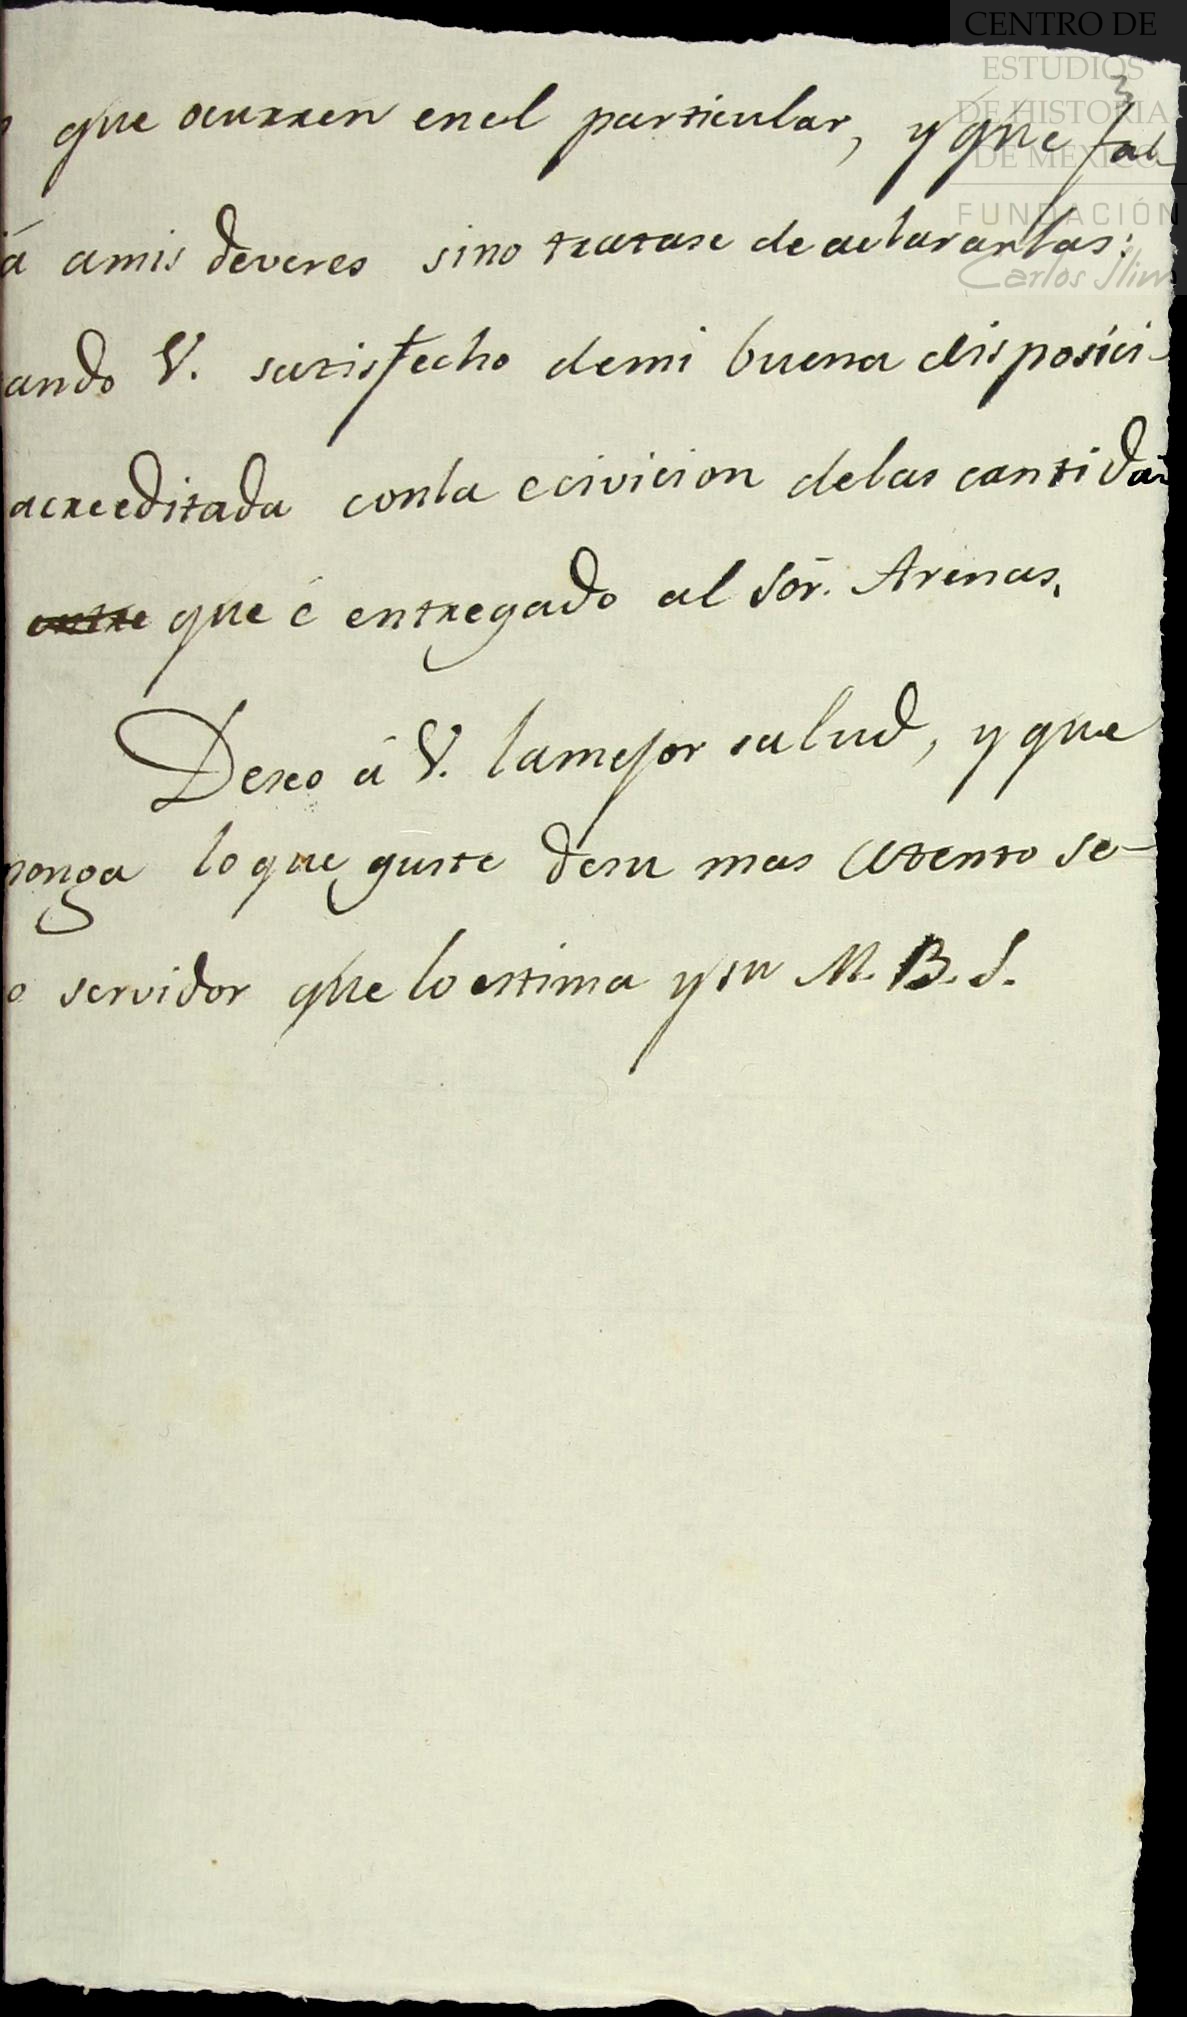 CENTRO DE
ESTUDIOS
DE HISTORIA
DE MEXICO
FUNDACIÓN
Carlos Slim
3
que ocurren enel particular, y que fal
ía amis deveres sino tratase de aclararlas:
ando V. satisfecho demi buena disposici-
acreeditada conla ecivicion delas cantida
que é entregado al Sōr. Arenas.
Deseo á V. lamejor salud, y que
ponga loque guste desu mas atento se-
o servidor que loestima ysu M. B. S.